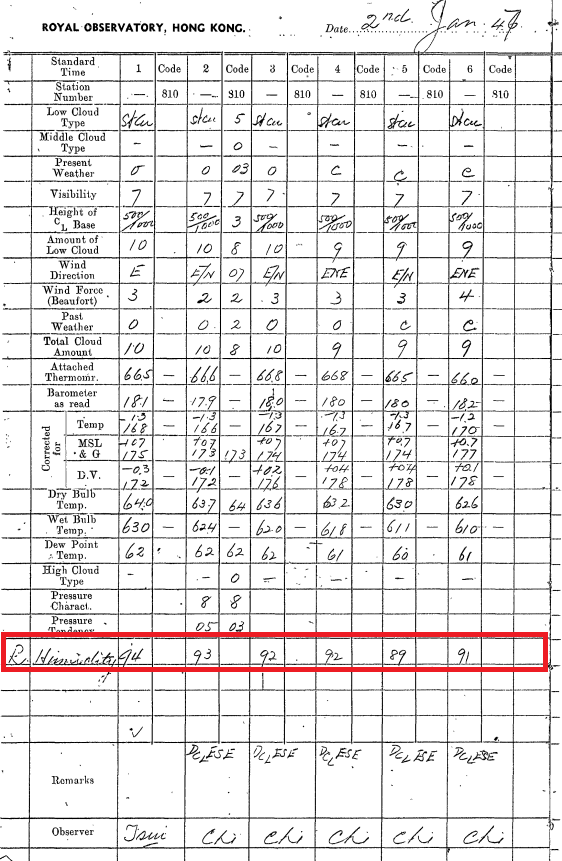 ROYAL OBSERVATORY, HONG KONG. Date 2nd Jan 47
Standard Time 1 Code 2 Code 3 Code 4 Code 5 Code 6 Code
Station Number — 810 — 810 — 810 — 810 — 810 — 810
Low Cloud Type Stcu Stcu 5 Stcu Stcu Stcu Stcu
Middle Cloud Type — — 0 — — — —
Present Weather o o 03 o c c c
Visibility 7 7 7 7 7 7 7
Height of CL Base 500/1000 500/1000 3 500/1000 500/1000 500/1000 500/1000
Amount of Low Cloud 10 10 8 10 9 9 9
Wind Direction E E/N 07 E/N ENE E/N ENE
Wind Force (Beaufort) 3 2 2 3 3 3 4
Past Weather o o 2 o o c c
Total Cloud Amount 10 10 8 10 9 9 9
Attached Thermomr. 665 — 666 — 668 — 668 — 665 — 660 —
Barometer as read 181 — 179 — 180 — 180 — 180 — 182 —
Corrected for
Temp -13 -13 -13 -13 -1.3 -1.2
168 166 167 16.7 16.7 170
MSL & G +07 +07 +07 +07 +0.7 +0.7
175 173 173 174 174 174 177
D.V. -0.3 -0.1 +02 +04 +04 +0.1
172 172 176 178 178 178
Dry Bulb Temp. 640 — 637 64 636 — 632 — 630 — 626 —
Wet Bulb Temp. 630 — 624 — 620 — 618 — 611 — 610 —
Dew Point Temp. 62 62 62 62 61 60 61
High Cloud Type - - 0 — — — —
Pressure Charact. 8 8
Pressure Tendency 05 03
R. Humidity 94 93 92 92 89 91
Remarks DCLESE DCLESE DCLESE DCLESE DCLESE
Observer Tsui Chi Chi Chi Chi Chi